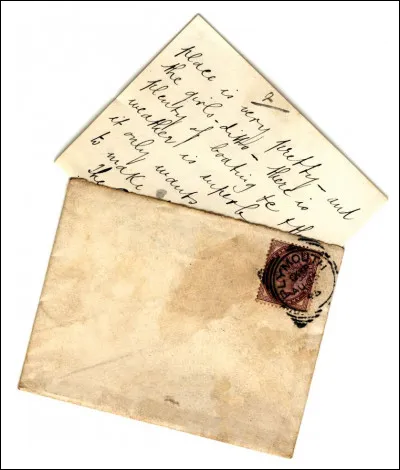 2
place is very pretty – and
the girls – ditto – there is
plenty of boating &c th
weather is superb
it only wants
to make
the
PLYMOUTH